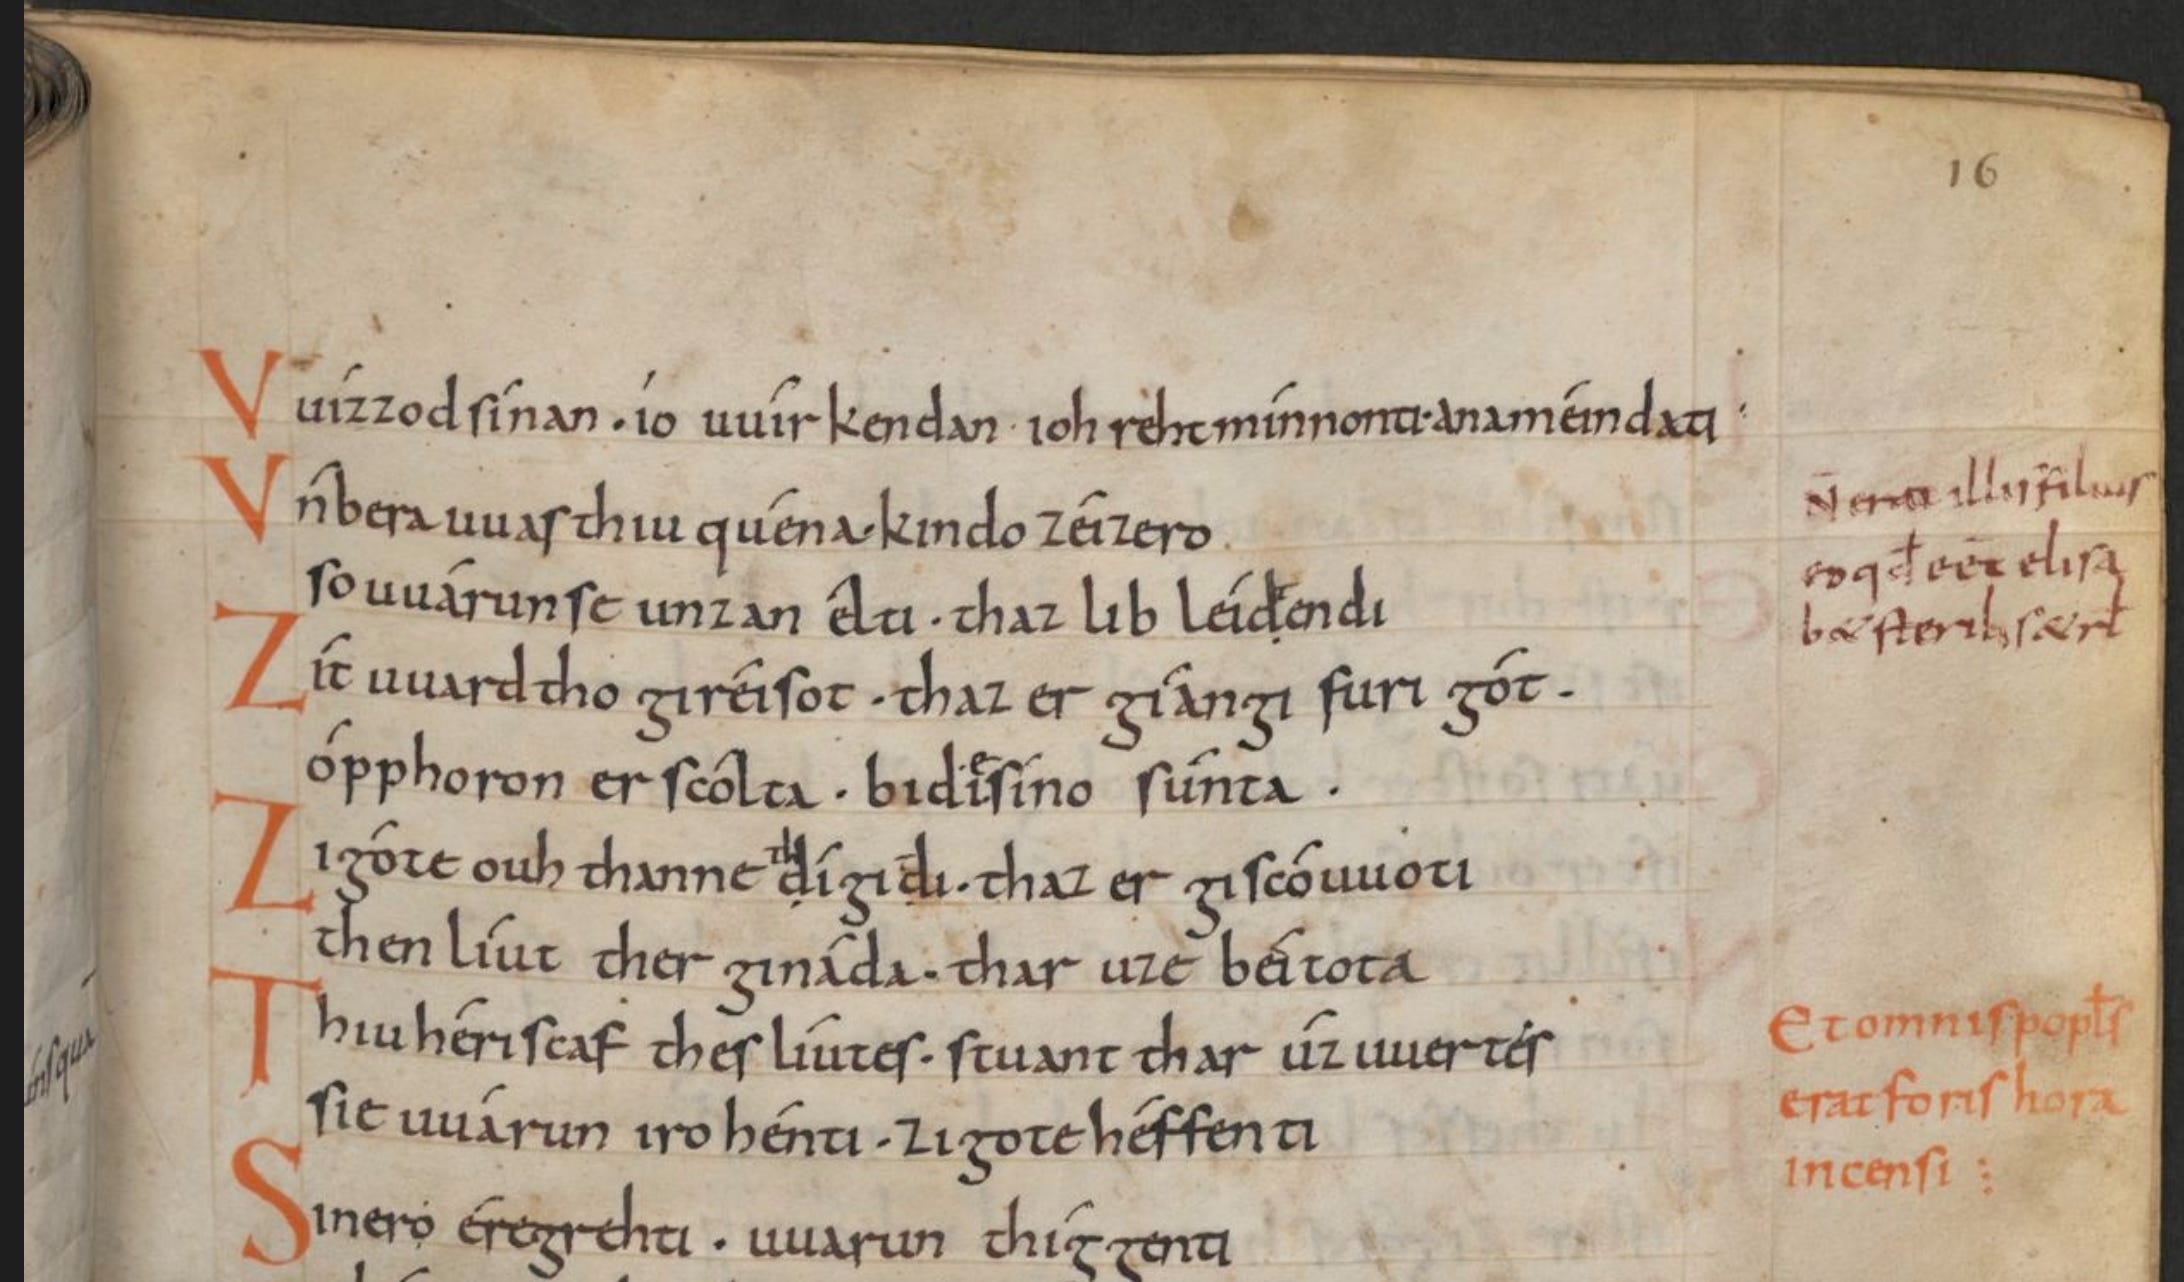 16
Vuízzod sínan · ío uuír kendan · ioh réht mínnonti · ana méindati
Vńbera uuas thiu quéna · kindo zéizero
so uuárun se unzan élti · thaz lib léidendi
Zít uuard tho giréisot · thaz er giángi furi gót ·
ópphoron er scólta · bi die síno súnta ·
Zi góte ouh thanne thígidi · thaz er giscóuuoti
then líut ther gináda · thar uze béitota
Thiu hériscaf thes líutes · stuant thar úz uuertés
sie uuárun iro hénti · zi gote héffenti
Sinero éregrehti · uuarun thíggenti
N̄ erat illis filius
eo qđ eēt elisa
bæ sterilis
Et omnis popłs
erat foris hora
incensi
insqua